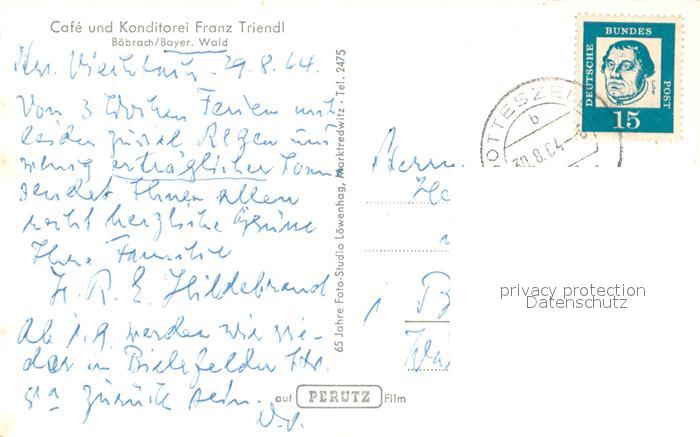 Café und Konditorei Franz Triendl
Böbrach/Bayer. Wald
Viechtach. 29.8.64.
Von 3 Wochen Ferien mit
leider zuviel Regen und
wenig erträglicher Sonne
sendet Ihnen allen
recht herzliche Grüße
Ihre Familie
H. R. E. Hildebrand
Ab 1.9. werden wir wie-
der in Bielefelder Str.
zurück sein.
65 Jahre Foto-Studio Löwenhag, Marktredwitz · Tel. 2475
auf PERUTZ Film
DEUTSCHE BUNDES POST
Luther
15
b
30.8.64
Herrn
privacy protection
Datenschutz